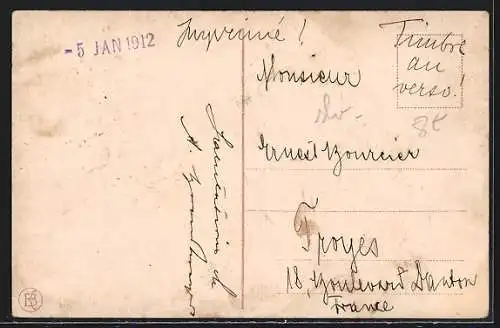 -5 JAN 1912
Imprimé!
Timbre
au
verso!
Monsieur
Ernest Bourcier
Troyes
18, Boulevard Danton
France
de